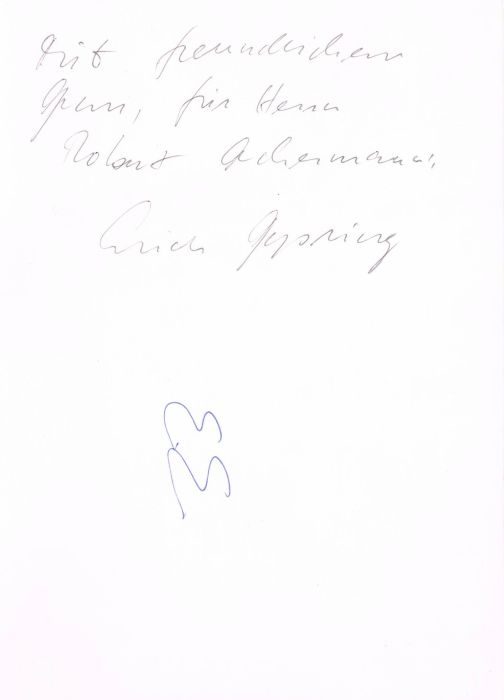 Mit freundlichem
Gruss, für Herrn
Robert Ackermann,
Erich Gysling